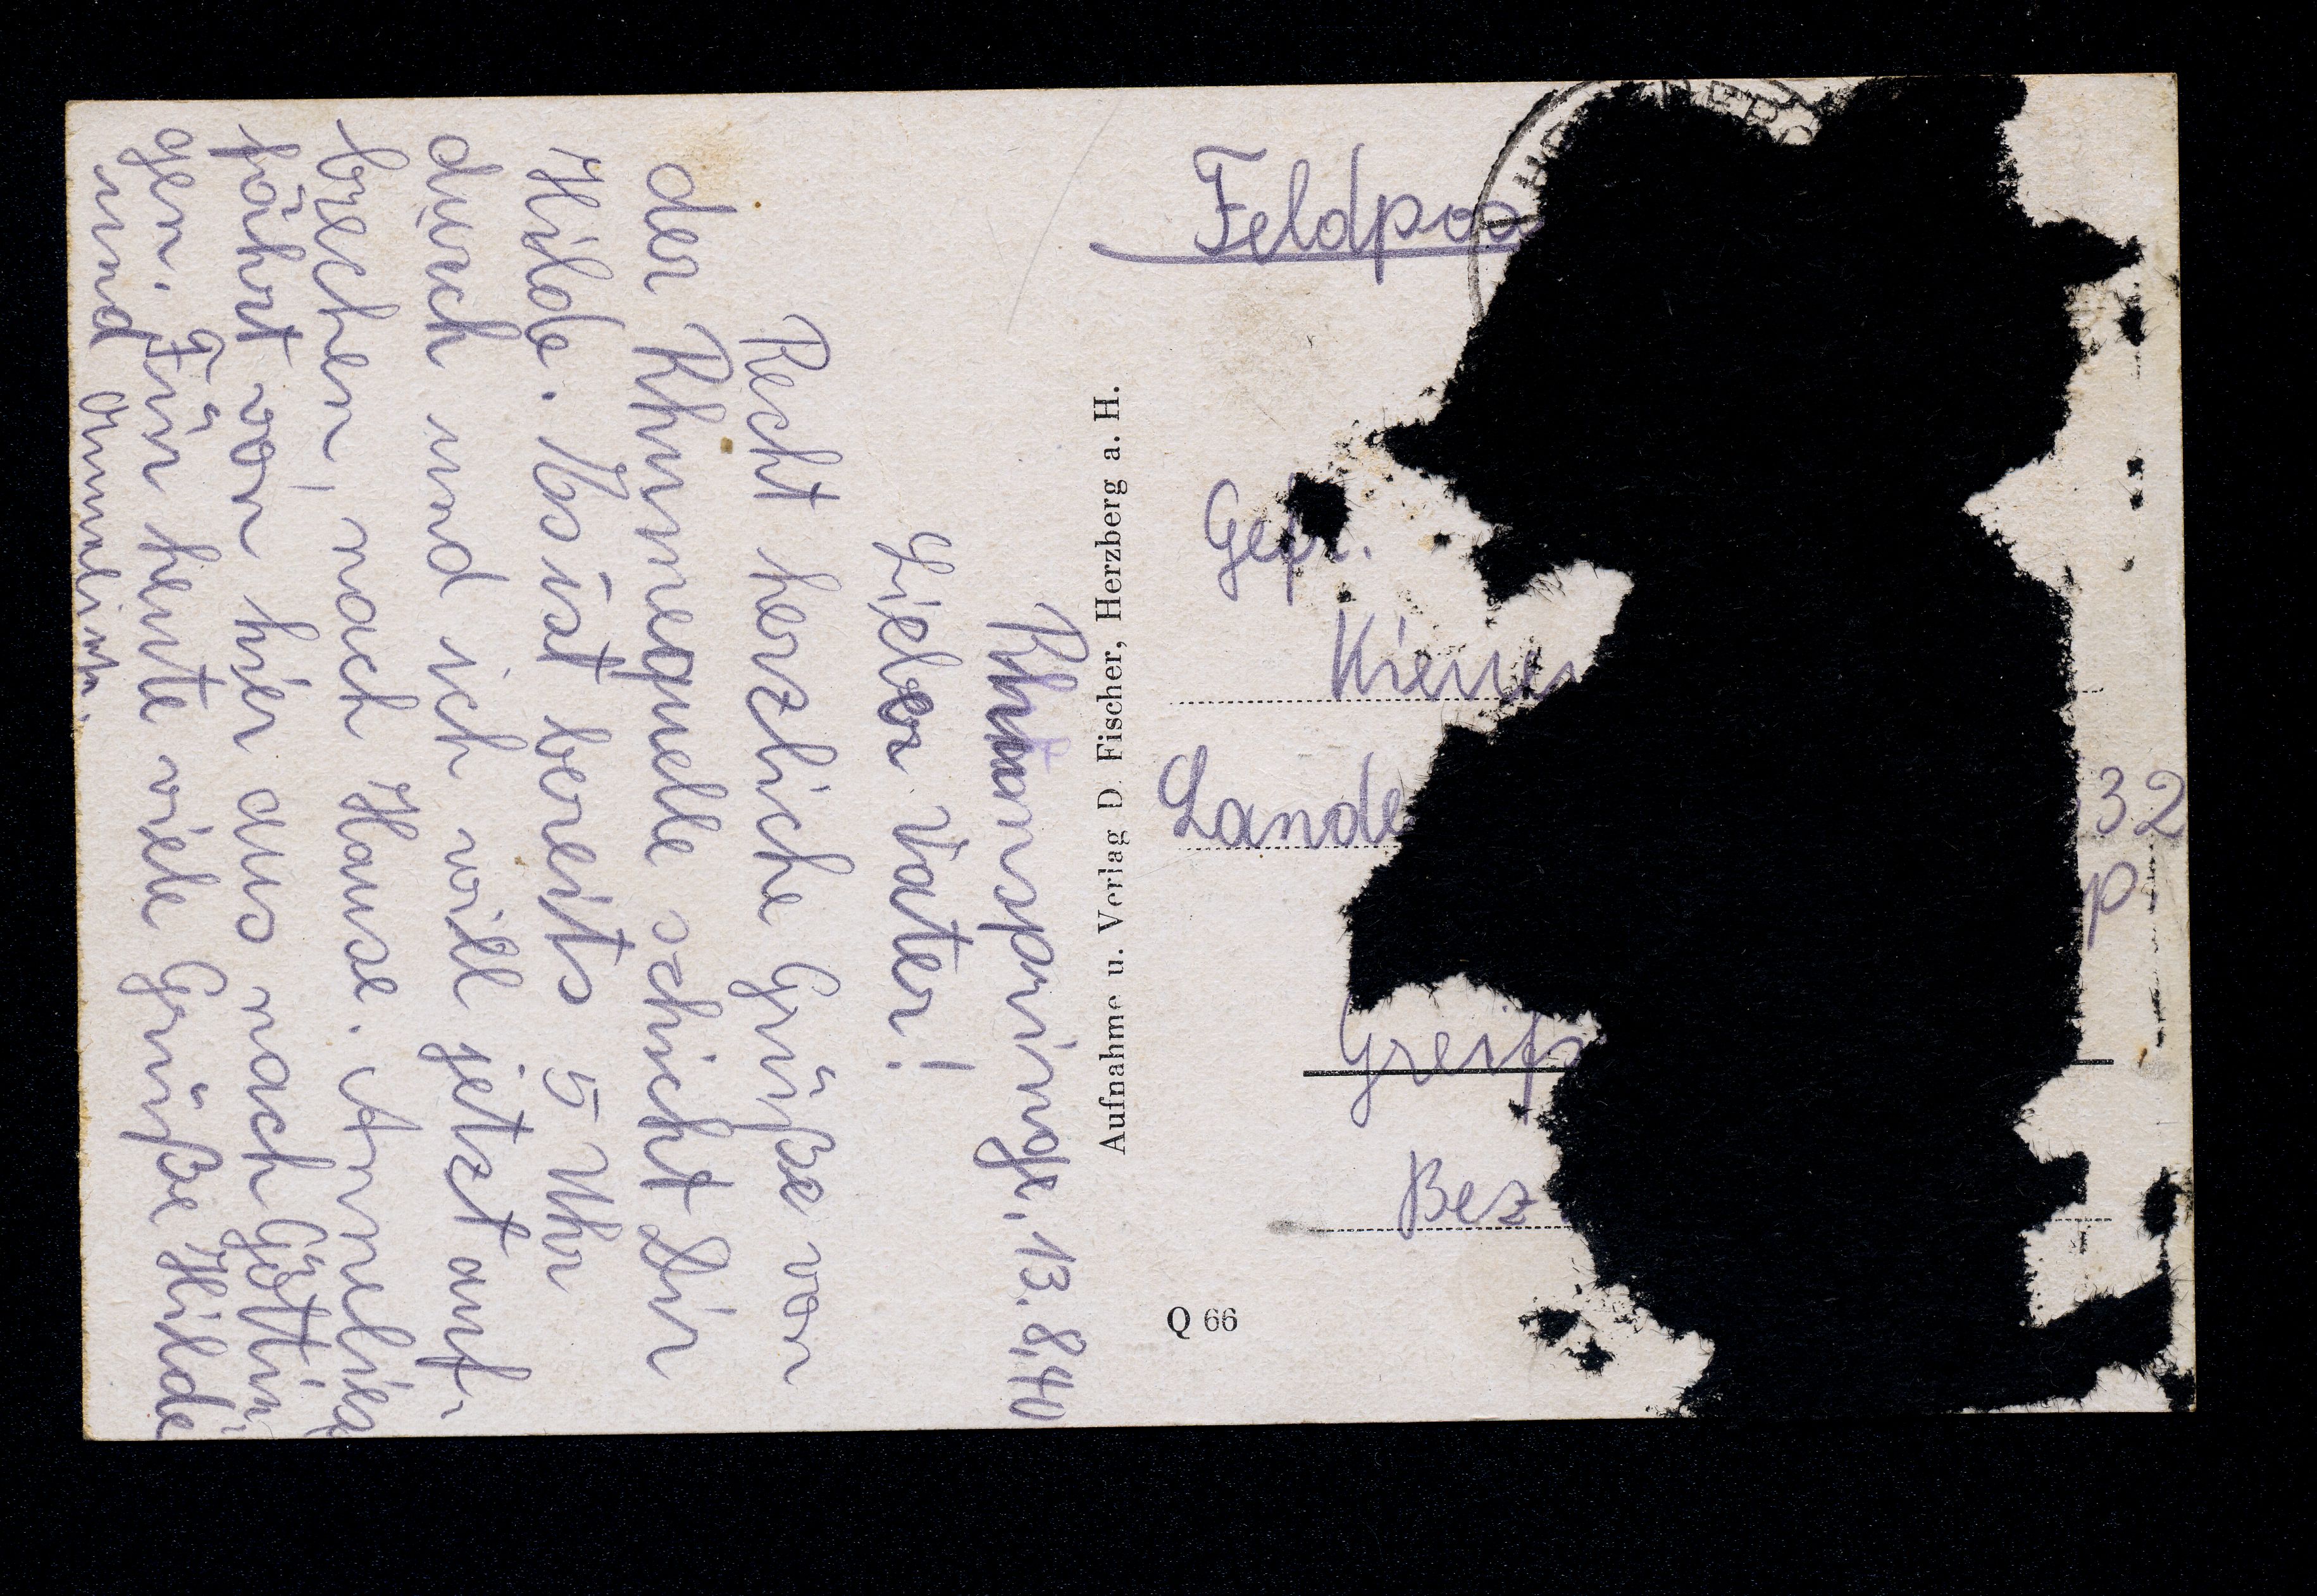 Rhumspringe, 13.8.40
Lieber Vater!
Recht herzliche Grüße von
der Rhumequelle schickt Dir
Hilde. Es ist bereits 5 Uhr
durch und ich will jetzt auf-
brechen, nach Hause. Annelise
fährt von hier aus nach Göttin-
gen. Für heute viele Grüße Hilde
und Annelise.
Aufnahme u. Verlag D. Fischer, Herzberg a. H.
Feldpos
Gefr.
Lande
32
p.
Greifs
Bez
Q 66